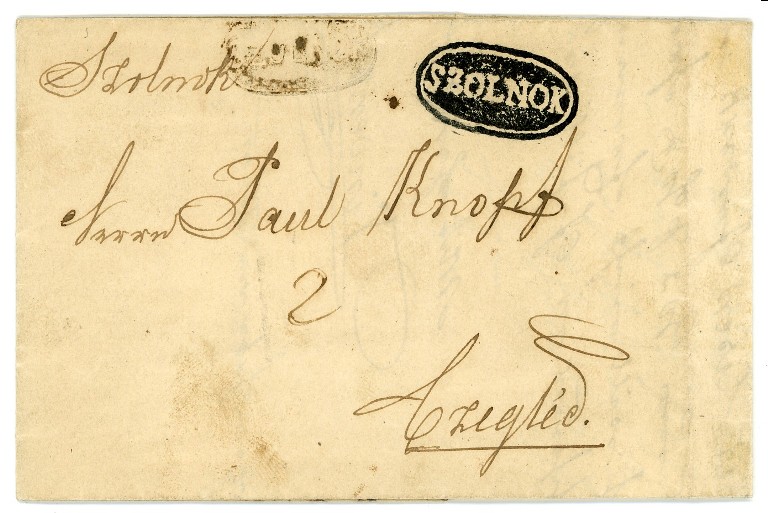 Szolnok
SZOLNOK
Herrn Paul Knopf
2
Czegléd.